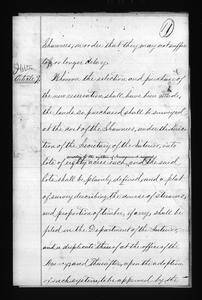 1
Shawnees, in order that they may not suffer
by longer delay.
Article
Whenever the selection and purchase of
the new reservation shall have been made,
the lands so purchased shall be surveyed
at the cost of the Shawnees, under the direc-
tion of the Secretary of the Interior, into
lots of eighty acres each, and the said
lots shall be plainly defined, and a plat
of survey describing the courses of streams,
and proportion of timber, if any, shall be
filed in the Department of the Interior,
and a duplicate thereof at the office of the
and thereafter, upon the adoption
of such system, to be approved by the